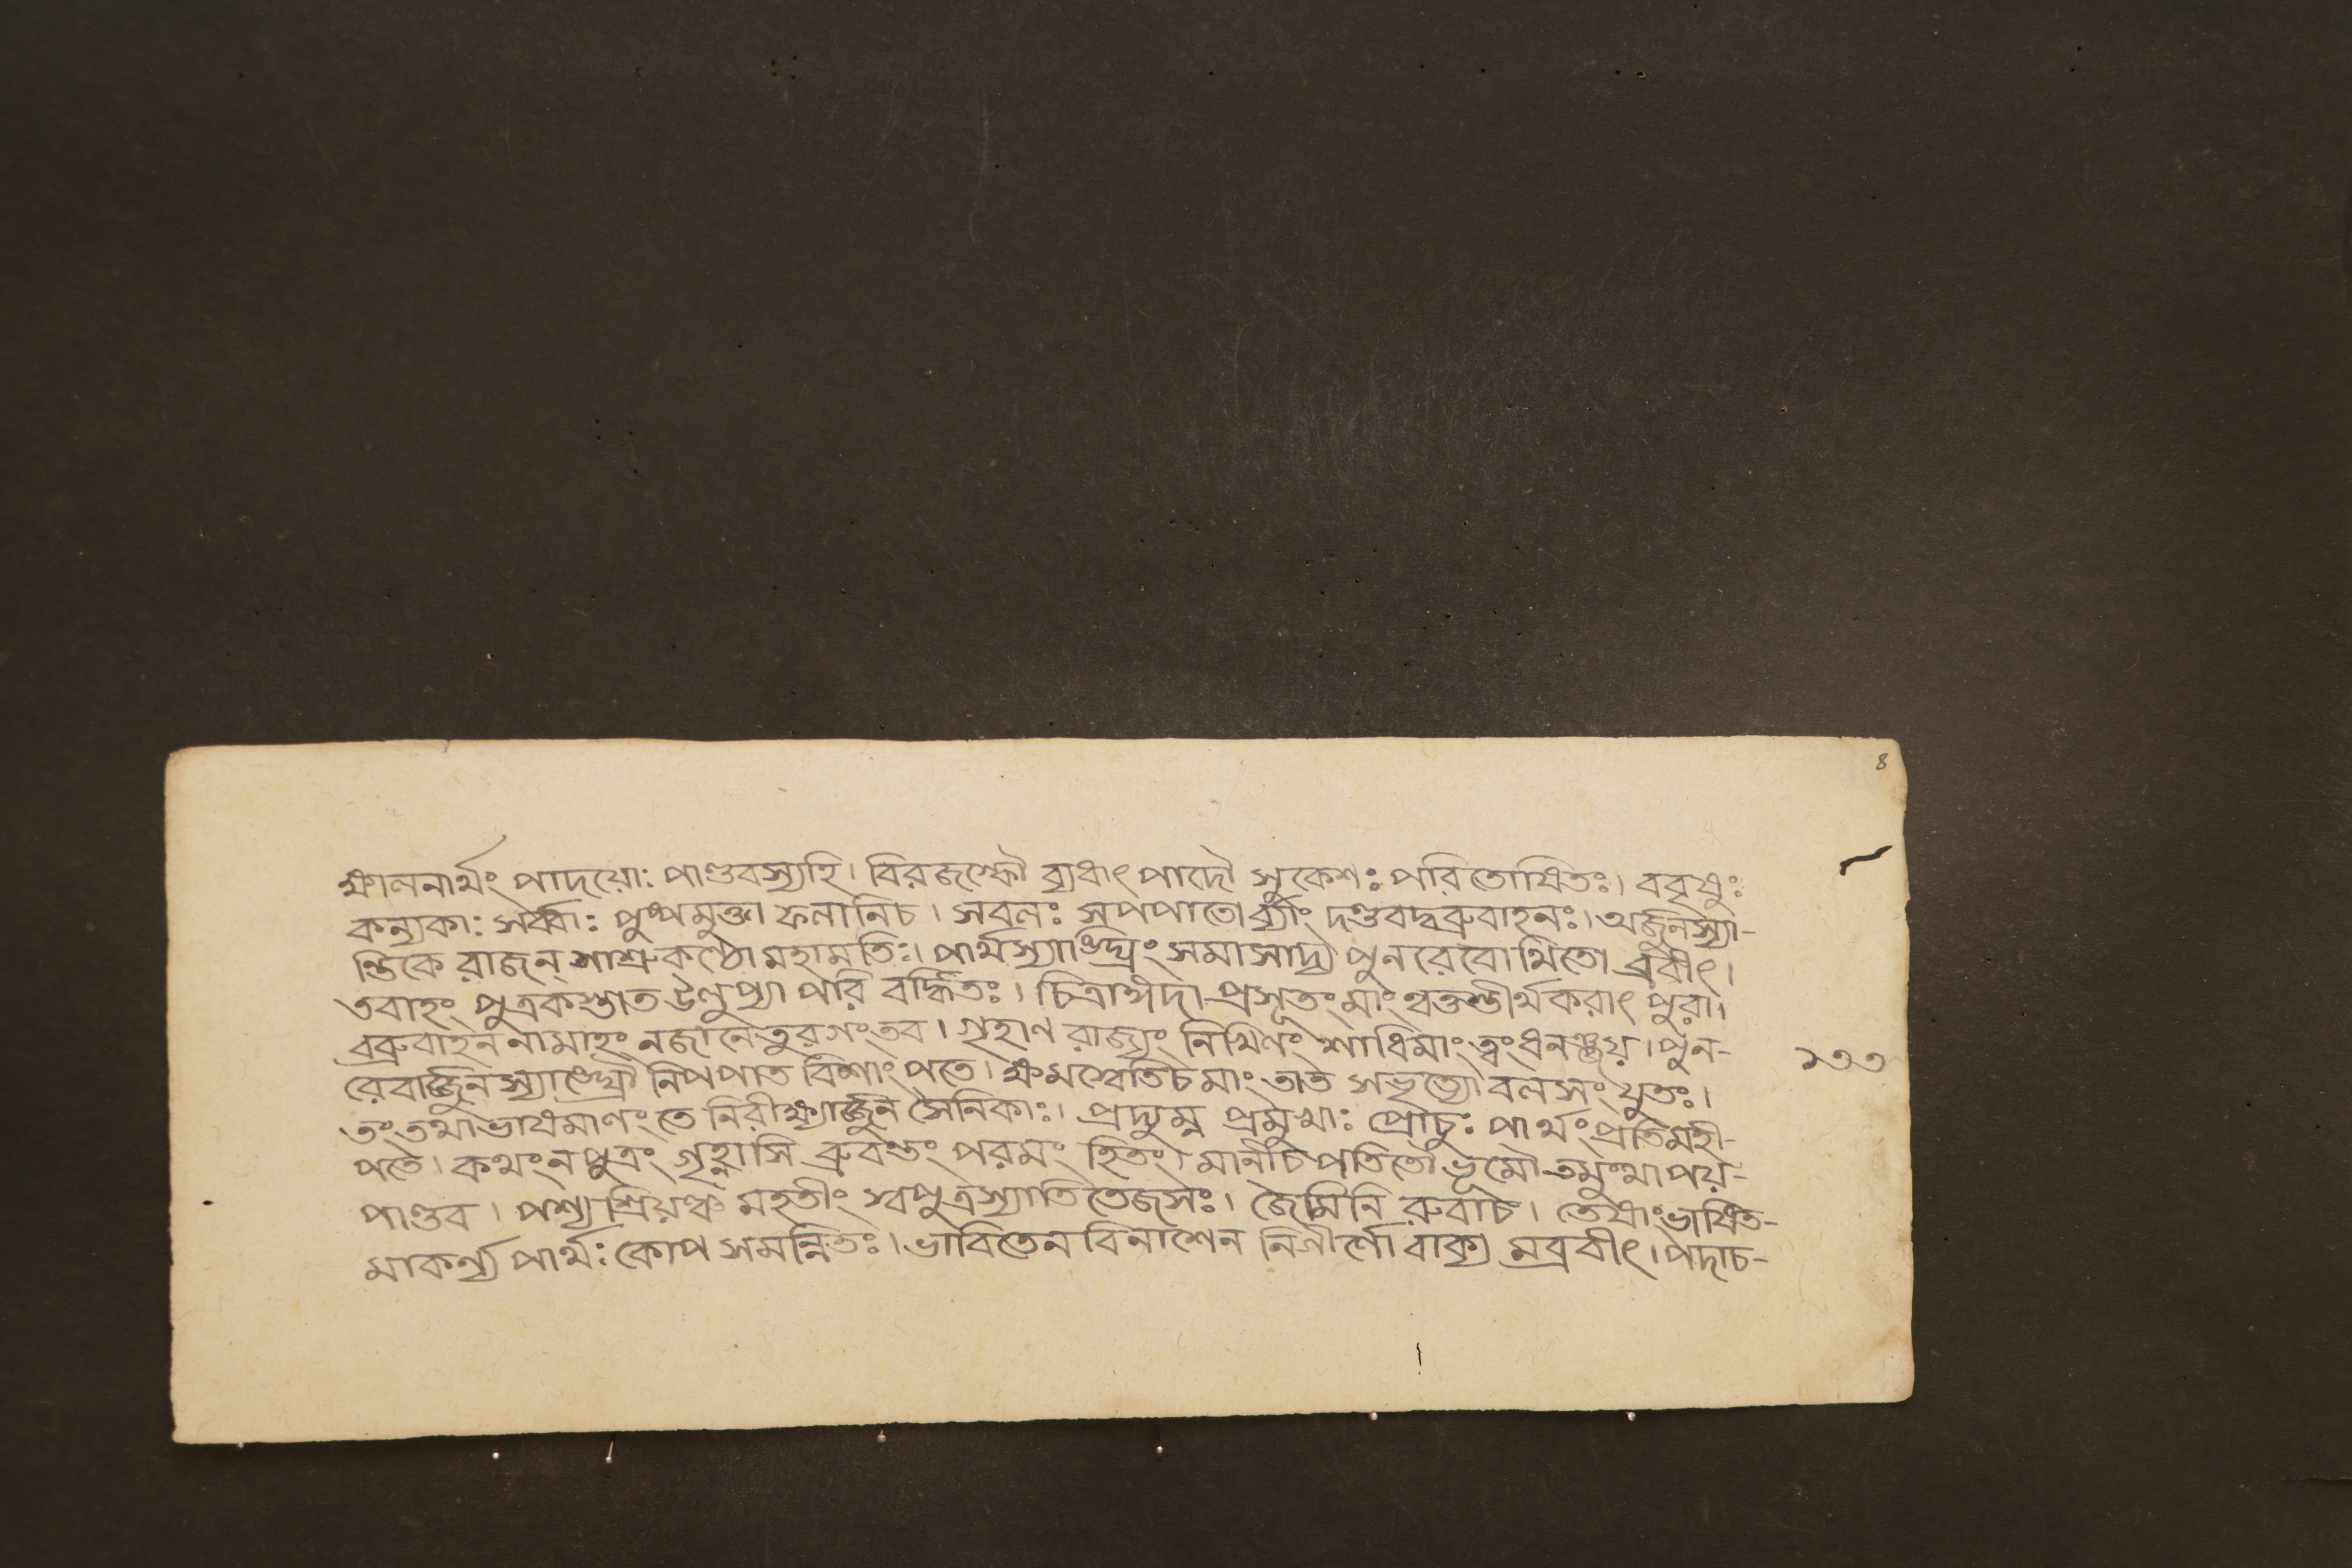 ৪
ক্ষালনার্থং পাদয়োঃ পাণ্ডবস্যহি। বিরজস্কৌ ব্যধাৎ পাদৌ সুকেশঃ পরিতোষিতঃ। ববৃষুঃ
কন্যকাঃ সর্ব্বাঃ পুষ্পমুক্তা ফলানিচ। সবলঃ সপপাতো র্ব্যাং দণ্ডবদ্বব্রুবাহনঃ। অর্জুনস্যা-
ন্তিকে রাজন্ সাশ্রুকণ্ঠো মহামতিঃ। পার্থস্যাঙ্ঘ্রিং সমাসাদ্য পুনরেবোত্থিতো ব্রবীৎ।
তবাহং পুত্রকস্তাত উলুপ্যা পরি বর্দ্ধিতঃ। চিত্রাঙ্গদা প্রসূতং মাং ত্বত্তস্তীর্থকরাৎ পুরা।
বব্রুবাহন নামাহং নজানে তুরগং তব। গৃহাণ রাজ্যং নিখিলং শাধিমাং ত্বং ধনঞ্জয়। পুন-
রেবার্জ্জুনস্যাঙ্ঘ্রৌ নিপপাত বিশাং পতে। ক্ষমস্বেতিচমাং তাত সভৃত্যো বলসংযুতঃ।
১৩৩
তং তথা ভাষমাণং তে নিরীক্ষ্যার্জ্জুন সৈনিকাঃ। প্রদ্যুম্ন প্রমুখাঃ প্রোচুঃ পার্থং প্রতি মহী-
পতে। কথং ন পুত্রং গৃহ্ণাসি ব্রুবন্তং পরমং হিতং। মানীচ পতিতো ভূমৌ তমুত্থাপয়-
পাণ্ডব। পশ্য শ্রিয়ঞ্চ মহতীং স্বপুত্রস্যাতি তেজসঃ। জৈমিনি রুবাচ। তেষাং ভাষিত-
মাকর্ণ্য পার্থঃ কোপ সমন্বিতঃ। ভাবিতেন বিনাশেন নিগীর্ণো বাক্য মব্রবীৎ। পদাচ-